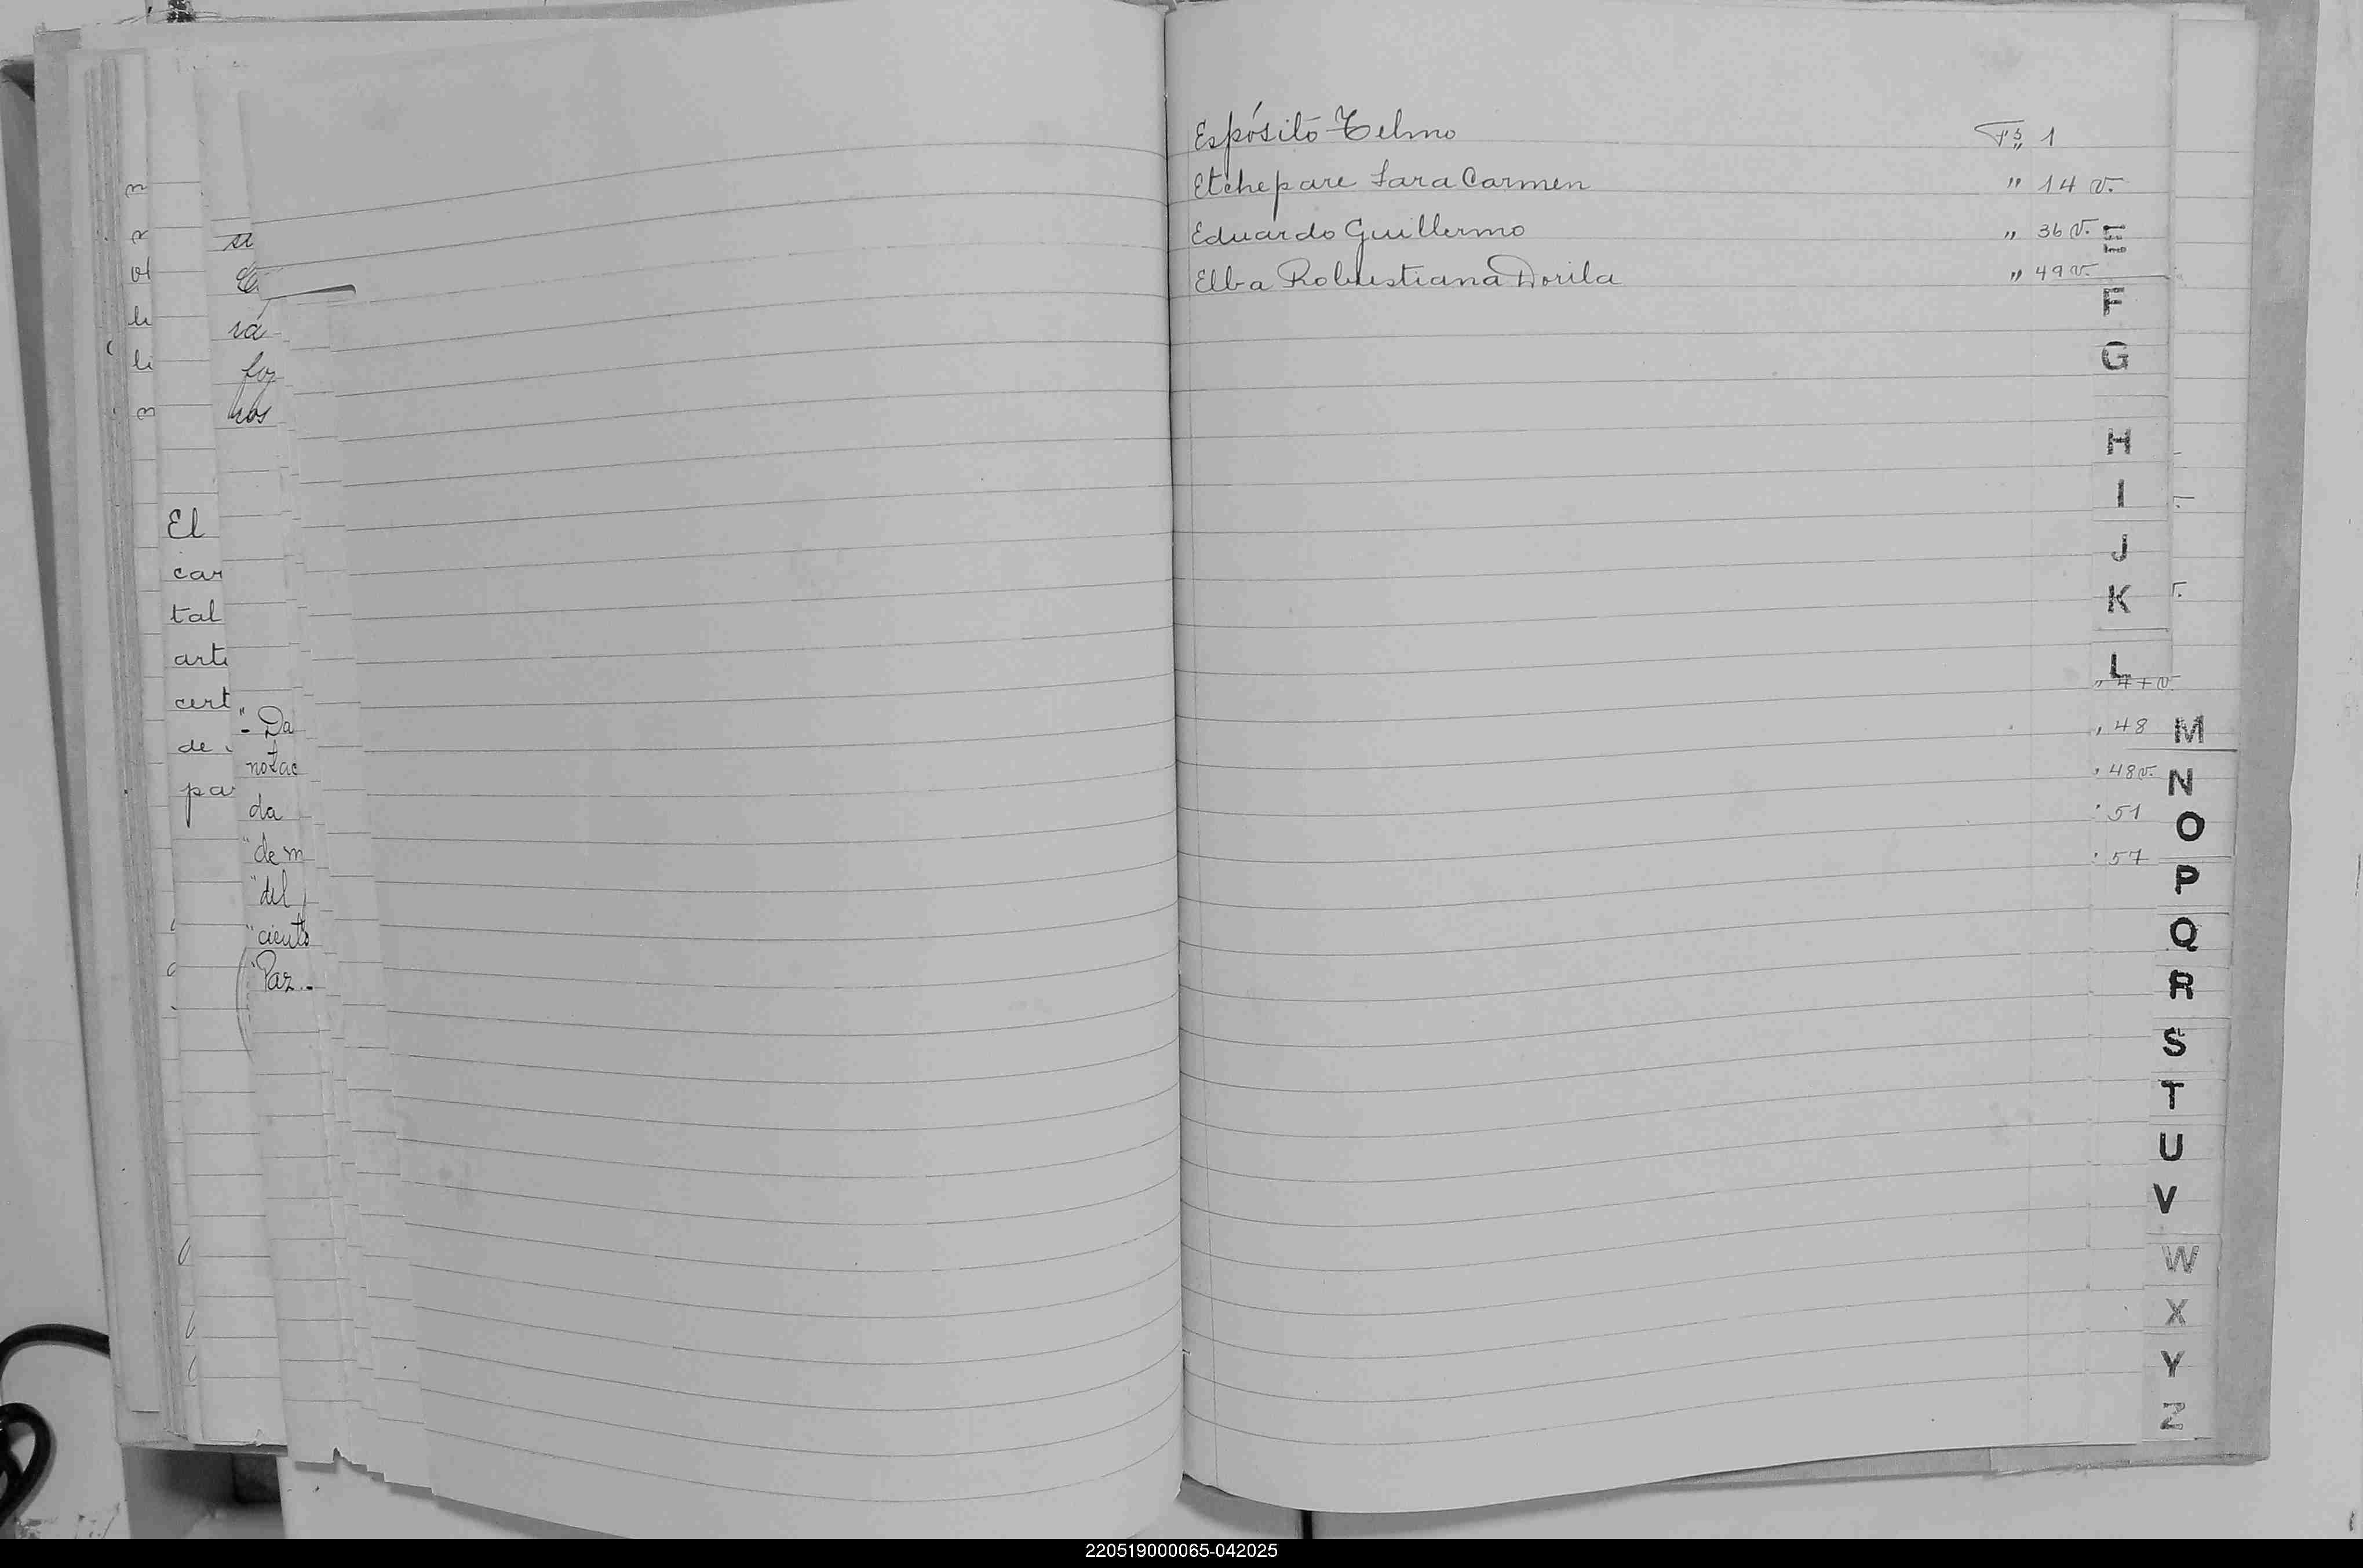 si
rá
for
ros
El
car
tal
arti
cert
de
pa
"- Da
notac
da
"de m
"del
"ciento
"Paz.-
Espósito Telmo Fs. 1
Etchepare Sara Carmen " 14 v.
Eduardo Guillermo " 36 v.
Elba Robustiana Dorila " 49 v.
E
F
G
H
I
J
K
L
" 47 v.
, 48 M
, 48 v. N
51 O
57 P
Q
R
S
T
U
V
W
X
Y
Z
220519000065-042025